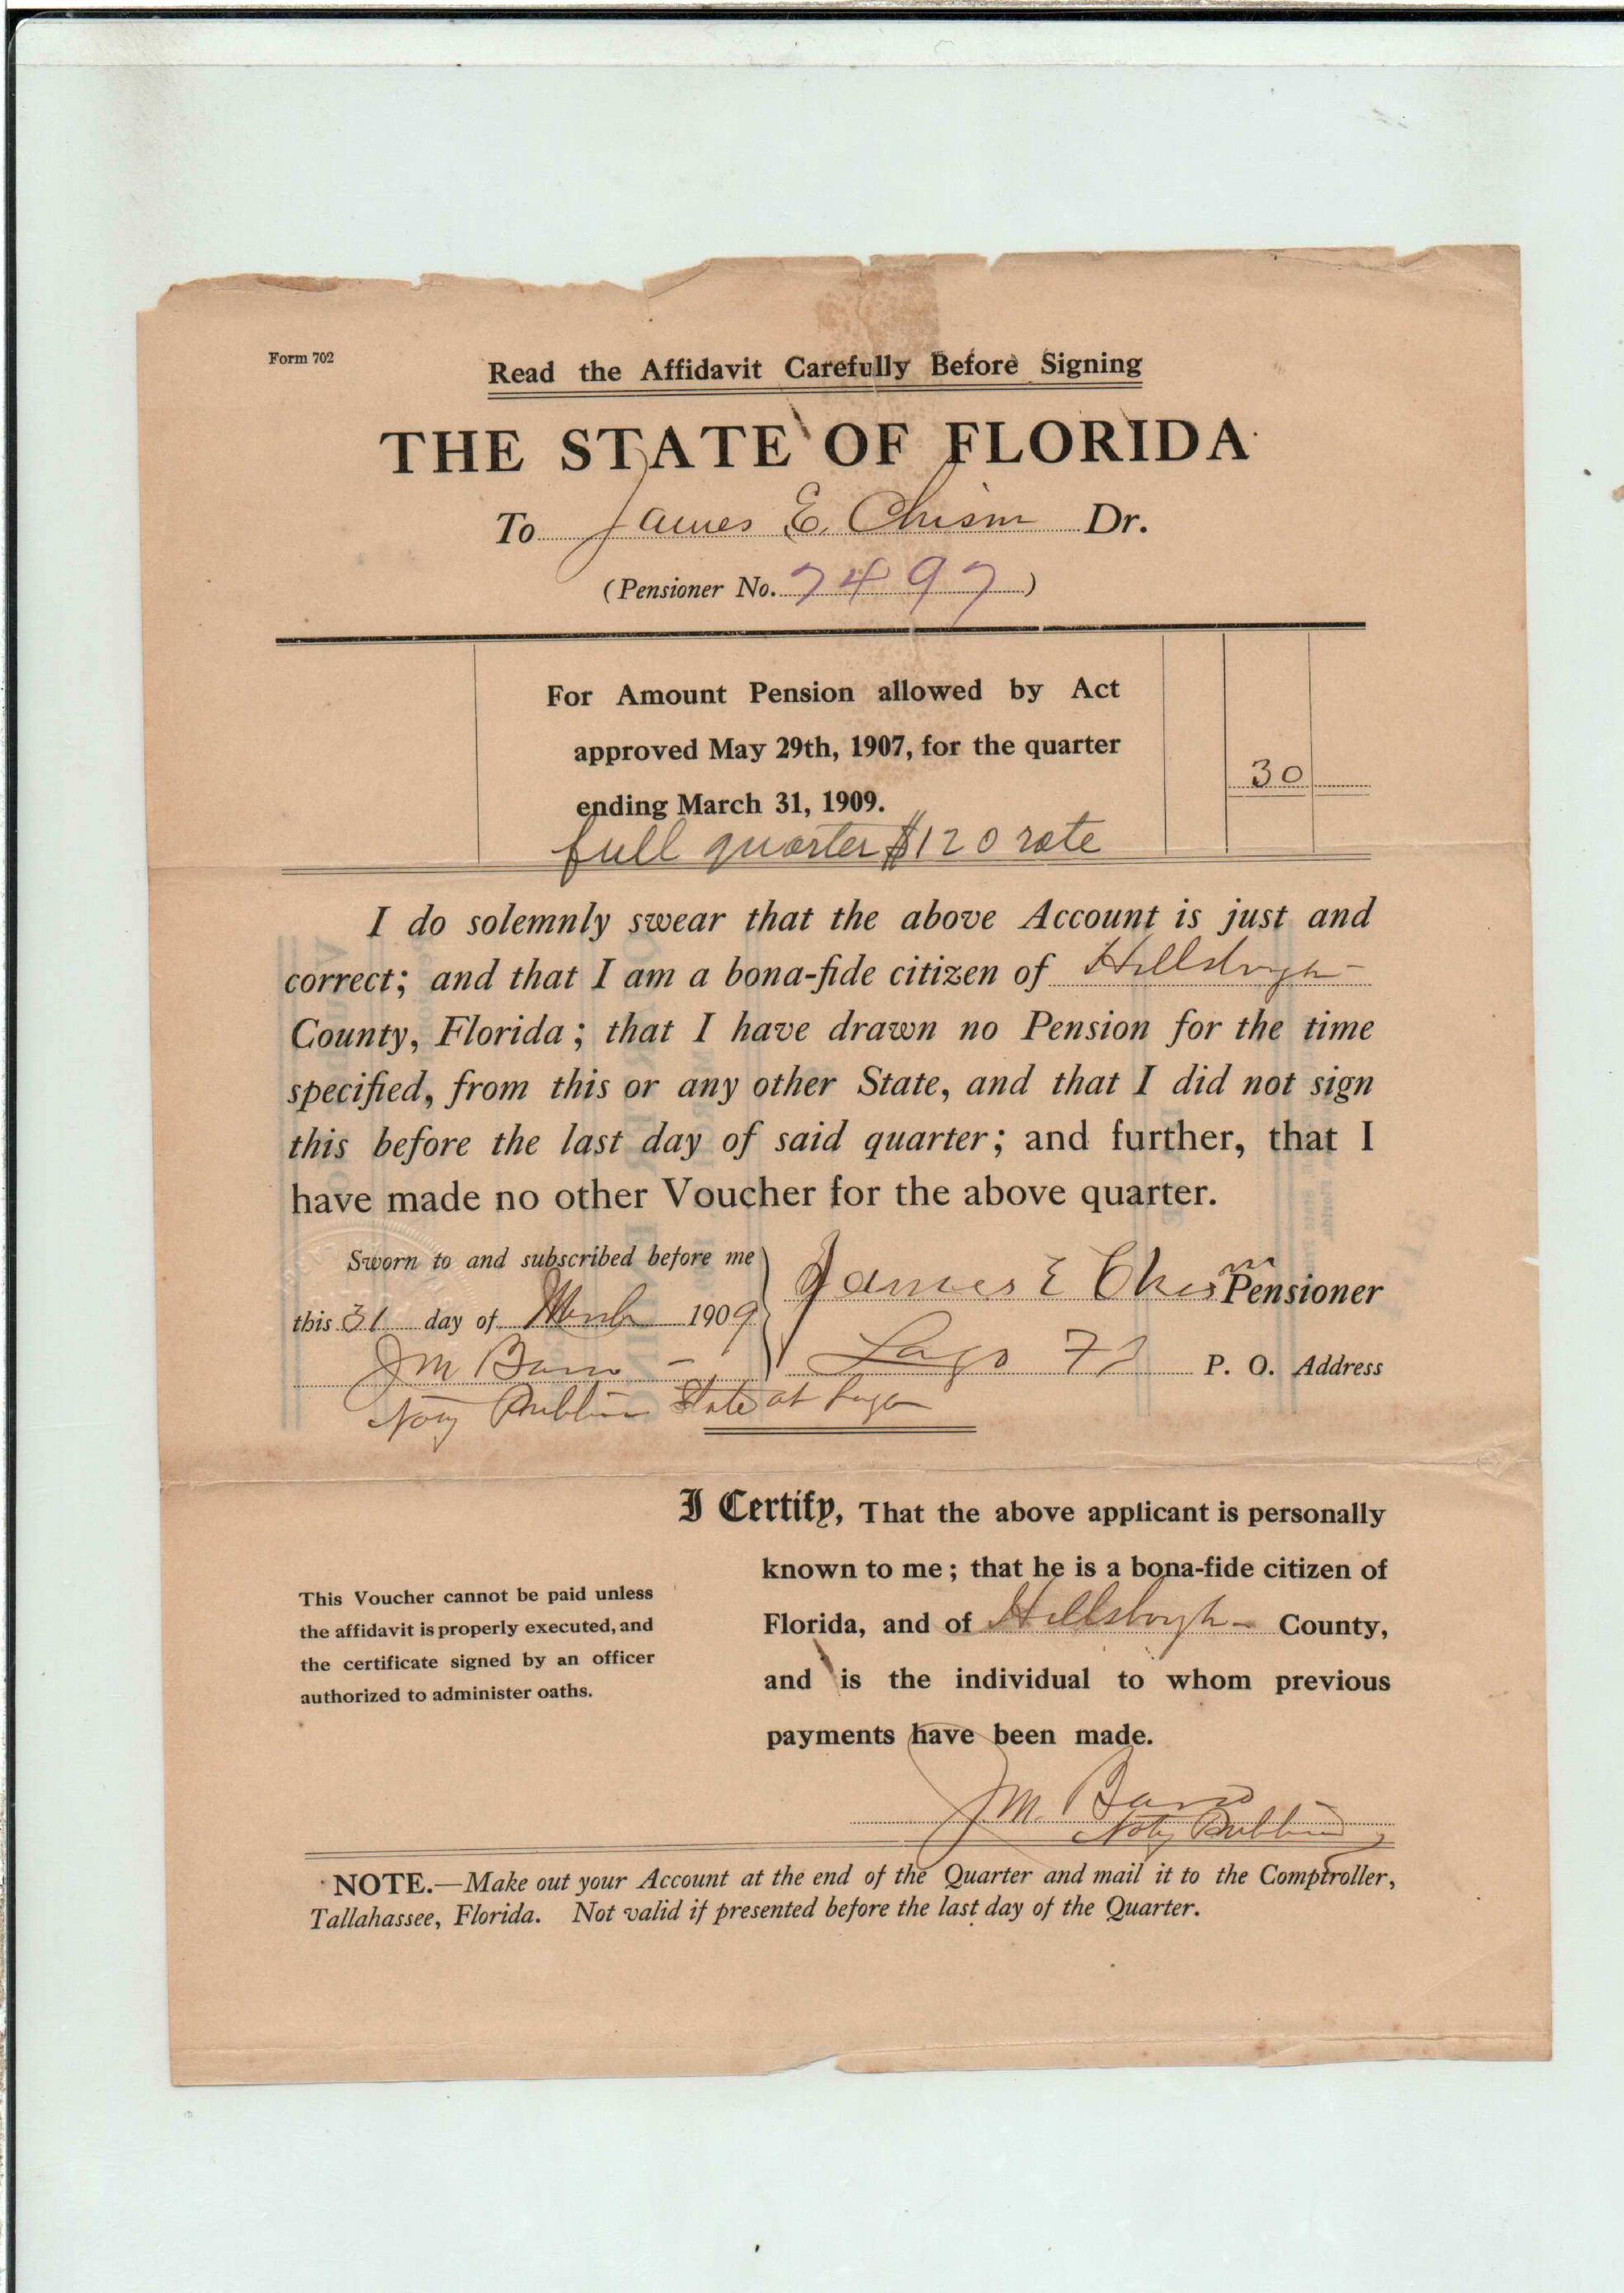 Form 702
Read the Affidavit Carefully Before Signing
THE STATE OF FLORIDA
To James E. Chism Dr.
(Pensioner No. 7497)
For Amount Pension allowed by Act
approved May 29th, 1907, for the quarter
ending March 31, 1909.
30
full quarter $120 rate
I do solemnly swear that the above Account is just and
correct; and that I am a bona-fide citizen of Hillsborgh
County, Florida; that I have drawn no Pension for the time
specified, from this or any other State, and that I did not sign
this before the last day of said quarter; and further, that I
have made no other Voucher for the above quarter.
Sworn to and subscribed before me
this 31 day of March 1909
James E Chism Pensioner
J M
Lago P. O. Address
Public State at Large
I Certify, That the above applicant is personally
known to me; that he is a bona-fide citizen of
Florida, and of Hillsborgh County,
and is the individual to whom previous
payments have been made.
This Voucher cannot be paid unless
the affidavit is properly executed, and
the certificate signed by an officer
authorized to administer oaths.
J. M.
Noty Public
NOTE.—Make out your Account at the end of the Quarter and mail it to the Comptroller,
Tallahassee, Florida. Not valid if presented before the last day of the Quarter.